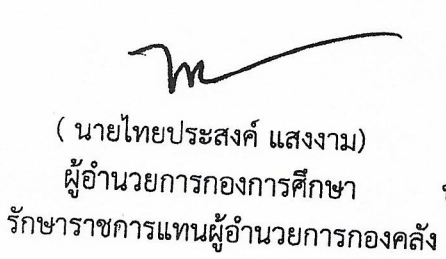 ( นายไทยประสงค์ แสงงาม)
ผู้อำนวยการกองการศึกษา
รักษาราชการแทนผู้อำนวยการกองคลัง